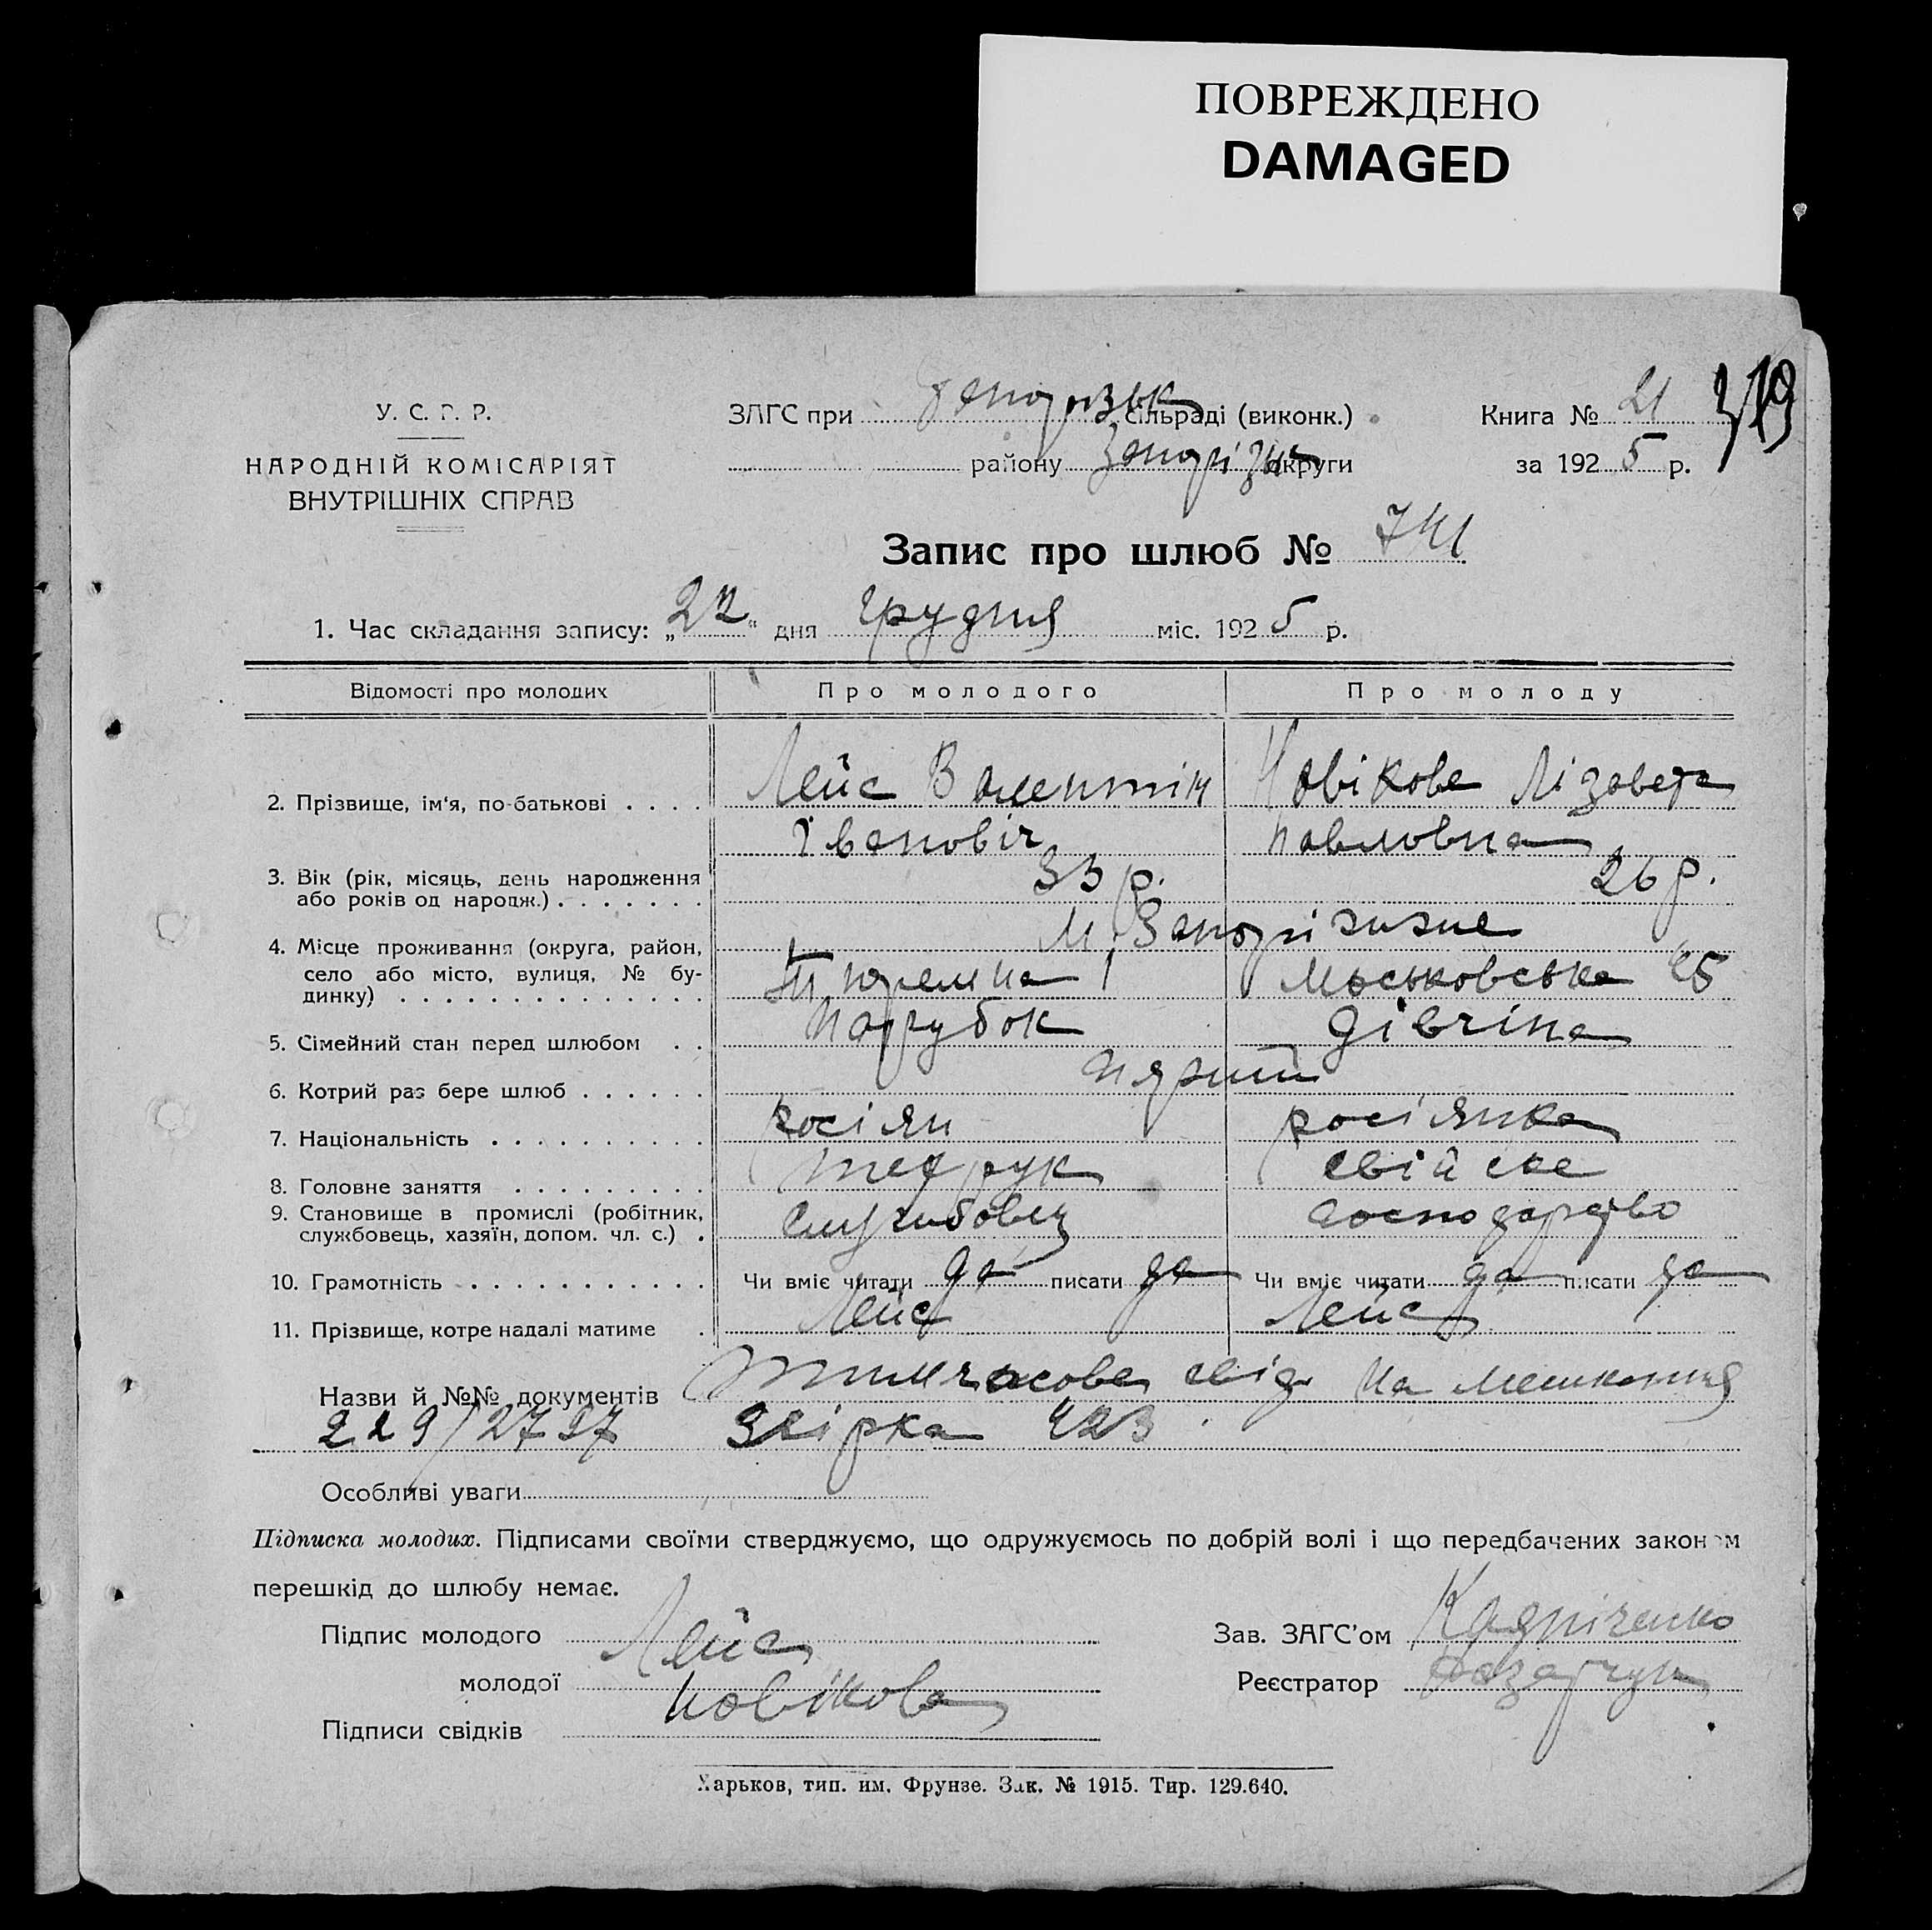 ПОВРЕЖДЕНО
DAMAGED
У. С. Р. Р.
НАРОДНІЙ КОМІСАРІЯТ
ВНУТРІШНІХ СПРАВ
ЗАГС при сільраді (виконк.)
району Запоріз округи
Книга № 21
за 1925 р.
Запис про шлюб № 741
1. Час складання запису: „22“ дня грудня міс. 1925 р.
Відомості про молодих Про молодого Про молоду
2. Прізвище, ім'я, по-батькові . . . . Лейс Валентін Новікова Лізавета
Івановіч Павловна
3. Вік (рік, місяць, день народження або років од народж.) . . . . . . . 33 р. 26 р.
м. Запоріжжє
4. Місце проживання (округа, район, село або місто, вулиця, № будинку) . . . . . . . . . . . . . . Тюремна 1 Московська 25
5. Сімейний стан перед шлюбом . . Парубок Дівчіна
6. Котрий раз бере шлюб . . . . . .
7. Національність . . . . . . . . . . росіян росіянка
8. Головне заняття . . . . . . . . . свійске
9. Становище в промислі (робітник, службовець, хазяїн, допом. чл. с.) . Службовец господарство
10. Грамотність . . . . . . . . . . . Чи вміє читати да писати да Чи вміє читати да писати да
11. Прізвище, котре надалі матиме . Лейс Лейс
Назви й №№ документів Тимчасове свід. на мешкання
229/2797 Зкірка 423
Особливі уваги
Підписка молодих. Підписами своїми стверджуємо, що одружуємось по добрій волі і що передбачених законом
перешкід до шлюбу немає.
Підпис молодого Лейс
молодої Новікова
Підписи свідків
Зав. ЗАГС'ом
Реєстратор
Харьков, тип. им. Фрунзе. Зак. № 1915. Тир. 129.640.